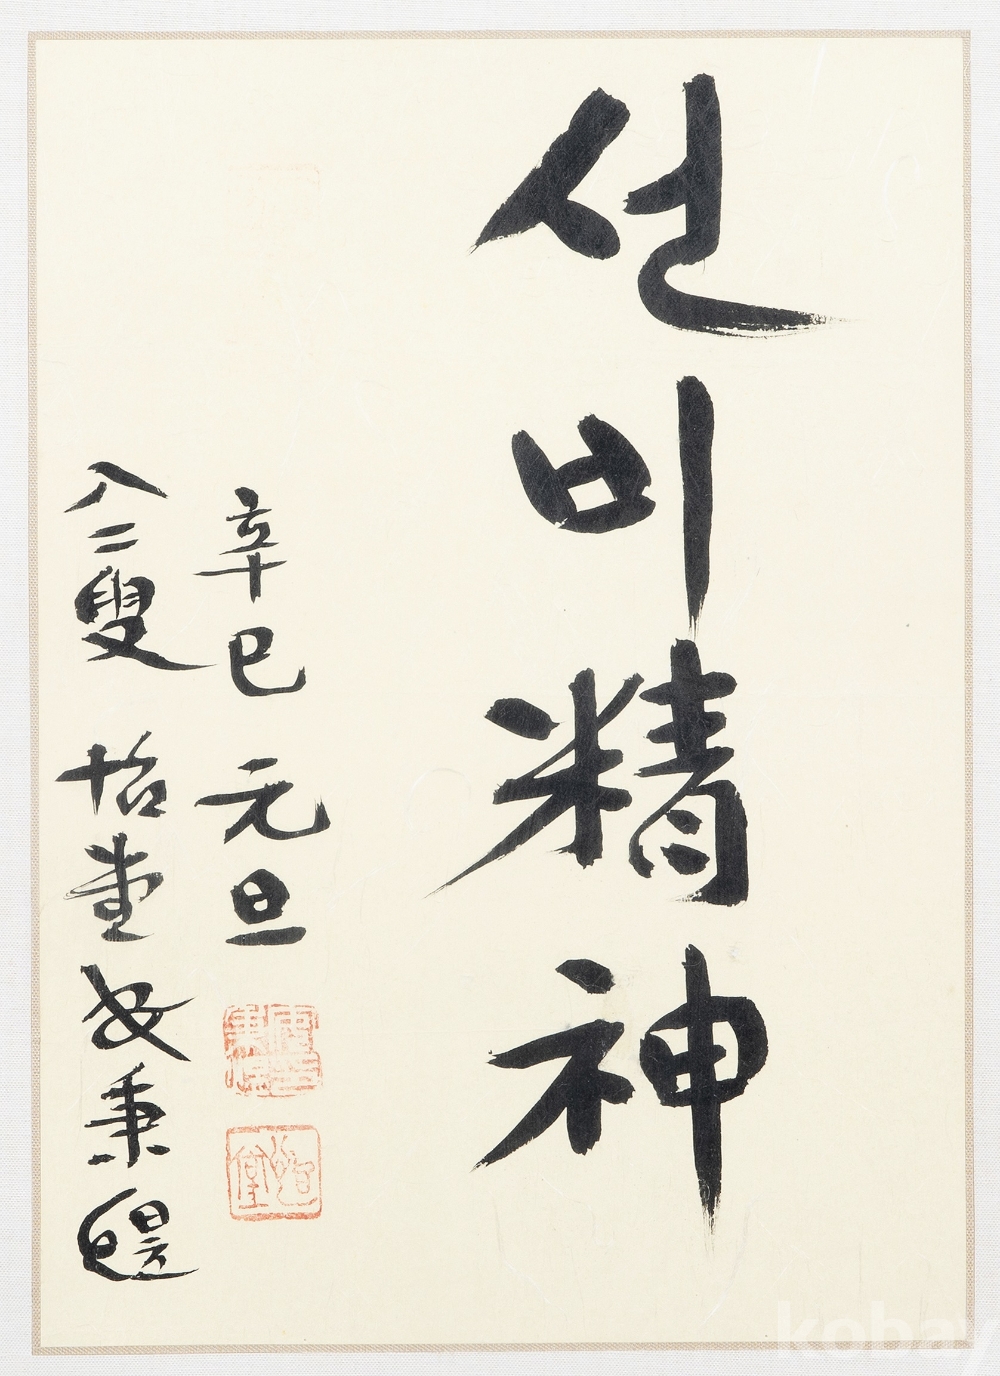 선비精神
辛巳 元旦
八二叟 怡堂 安秉煜
怡堂
kobay